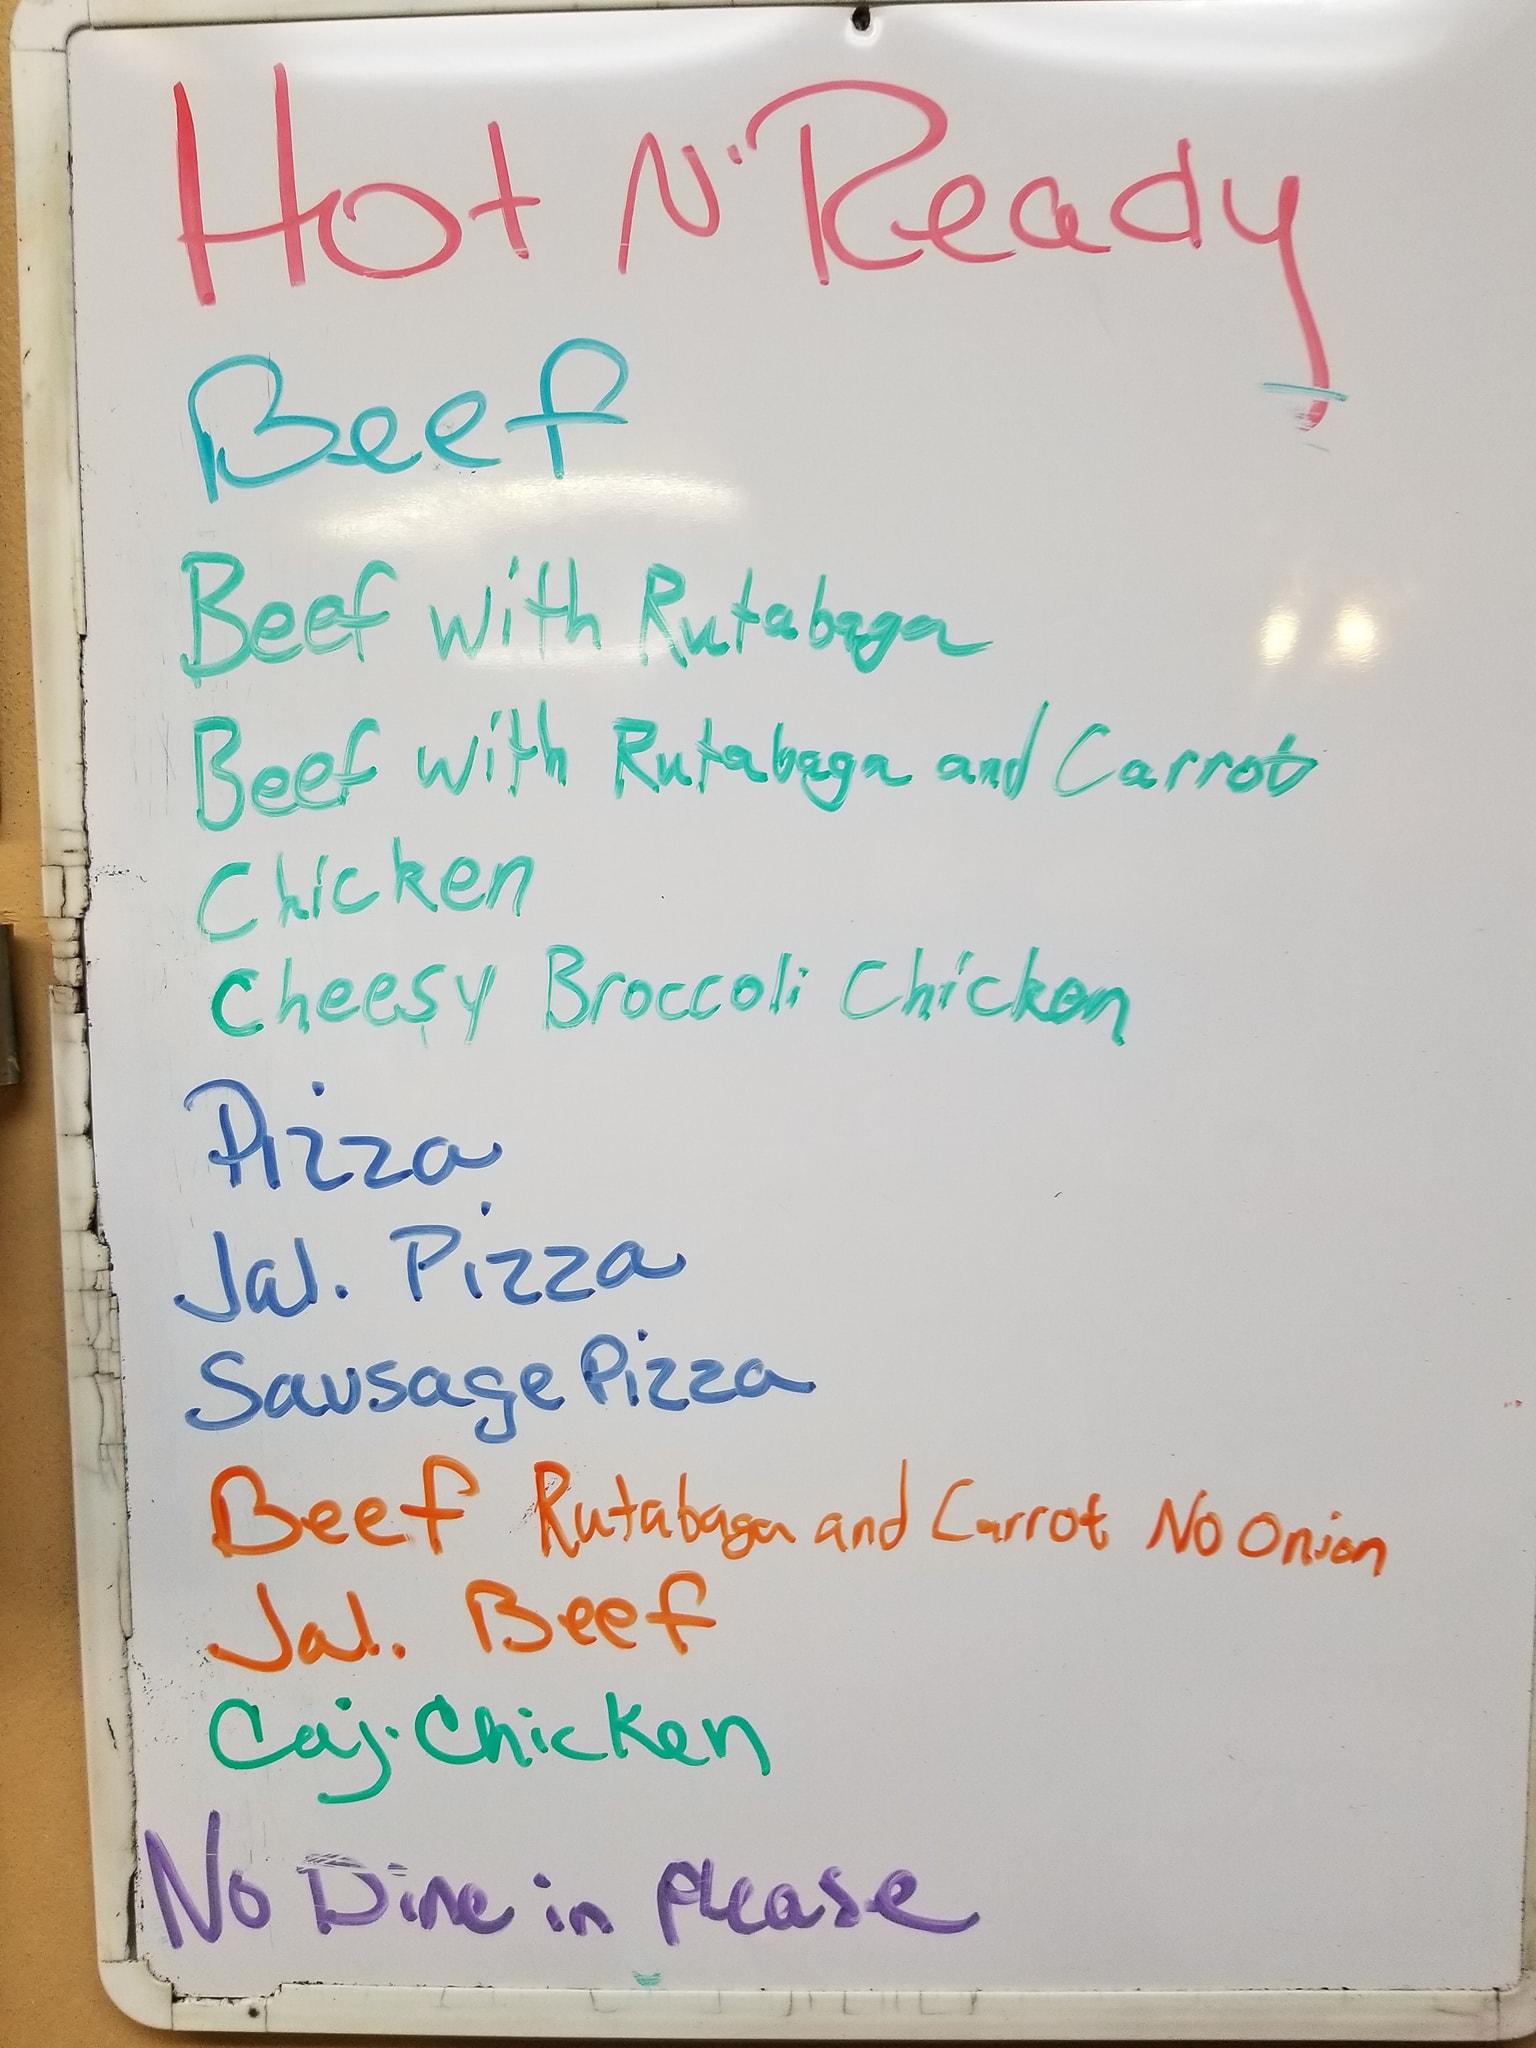 Hot N' Ready
Beef
Beef with Rutabaga
Beef with Rutabaga and Carrot
Chicken
Cheesy Broccoli Chicken
Pizza
Jal. Pizza
Sausage Pizza
Beef Rutabaga and Carrot No Onion
Jal. Beef
Caj. Chicken
No Dine in please